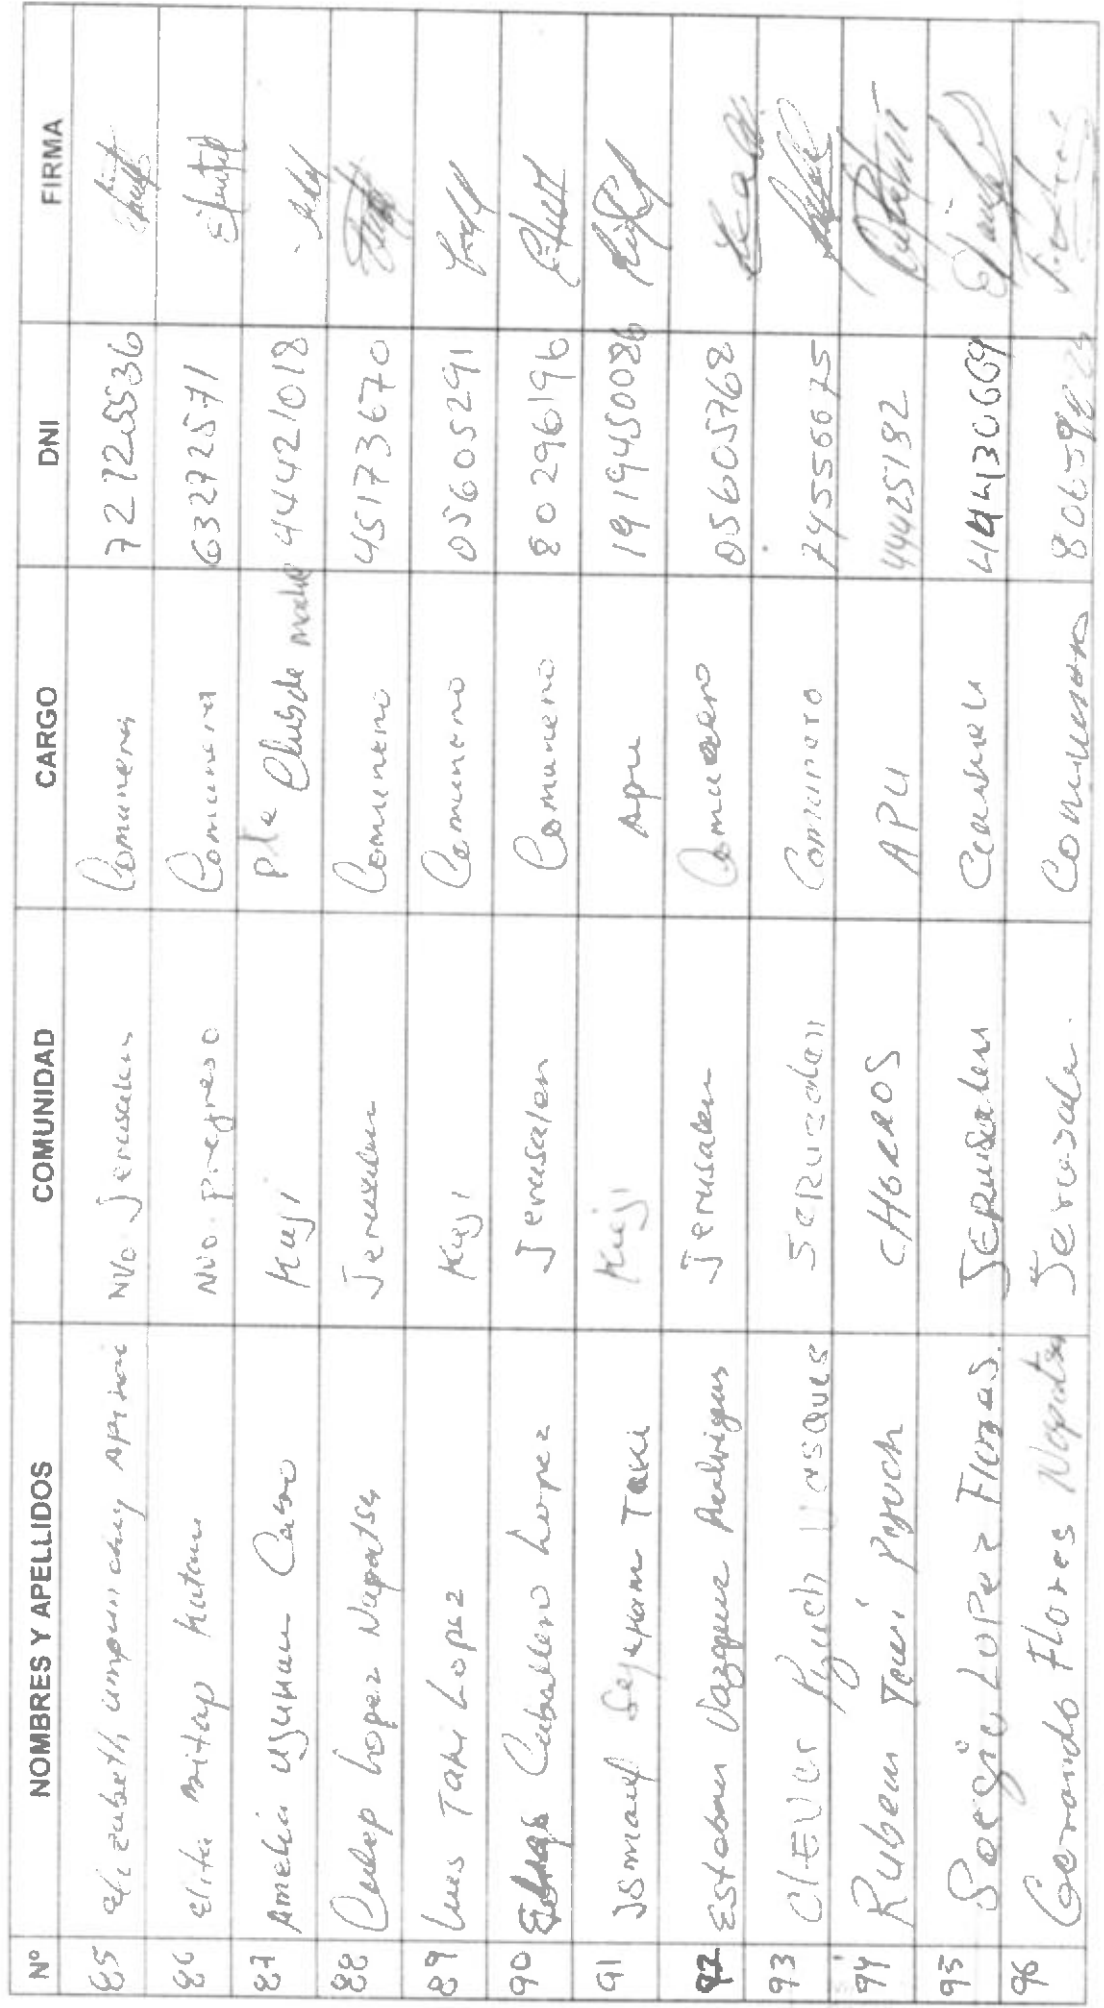 Nº NOMBRES Y APELLIDOS COMUNIDAD CARGO DNI FIRMA
85 Elizabeth NVO Jerusalen Comunera 72725536
86 Elita Mitap Kutan NVO. Progreso Comunera 63272571
87 Amelia Ugkuan Casro Kuji Pta Club de madre 44421018
88 Lopez Napatse Jerusalen Comunero 45173670
89 Lues Taki Lopez Kuji Comunero 05605291
90 Caballero Lopez Jerusalen Comunero 80296196
91 Ismael Taki Kuji Apu
92 Esteban Vazquez Rodrigues Jerusalen Comunero 05605768
93 ClEVer Pyuch Vasques Seruzalen Comunero 74556675
94 Ruben Tauri Payuch CHORROS APU 44425132
95 Soegio LoPez Flores. JERUSalen
96 Gerardo Flores Napatse Jerosale. Comunero